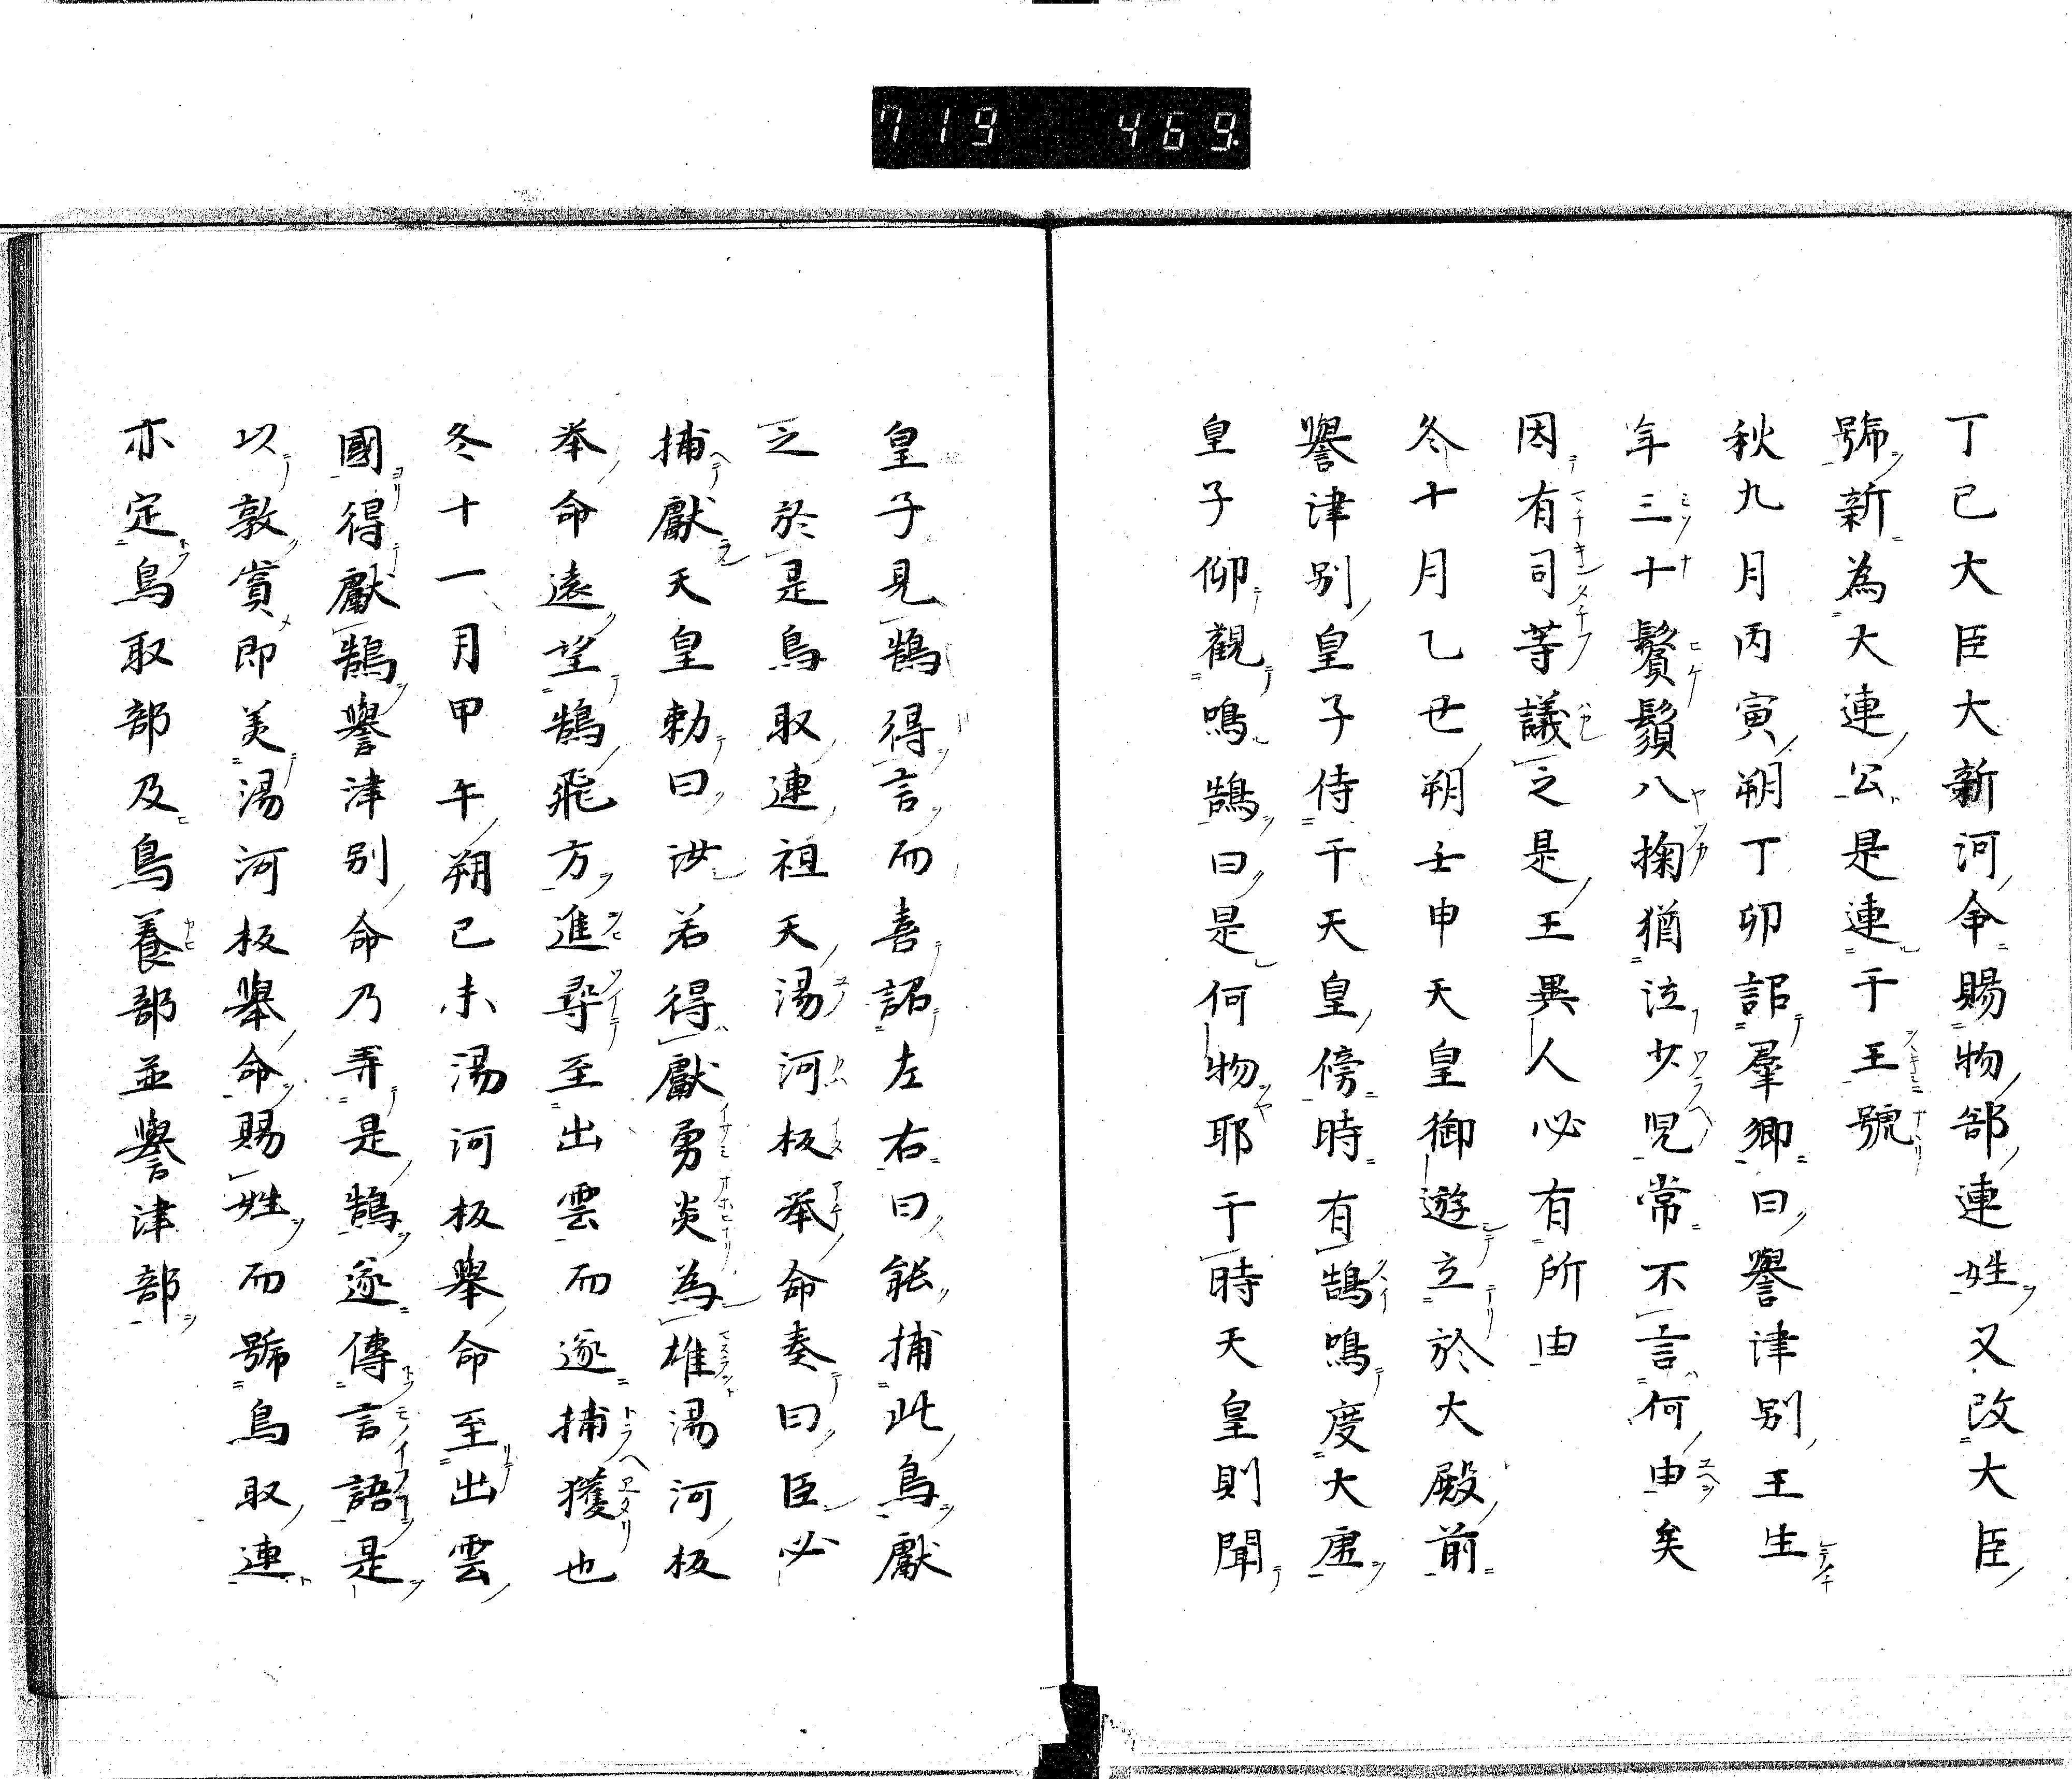 719 469.
丁巳大臣大新河命賜物部連姓又改大臣
號新為大連公是連于王號
秋九月丙寅朔丁卯詔羣卿曰譽津別王生
年三十鬢鬚八掬猶泣少児常不言何由矣
因有司等議之是王異人必有所由
冬十月乙丗朔壬申天皇御遊立於大殿前
譽津別皇子侍干天皇傍時有鵠鳴度大虛
皇子仰觀鳴鵠曰是何物耶于時天皇則聞
皇子見鵠得言而喜詔左右曰能捕此鳥獻
之於是鳥取連祖天湯河板举命奏曰臣必
捕獻天皇勅曰汝若得獻勇炎為雄湯河板
举命遠望鵠飛方進尋至出雲而逐捕獲也
冬十一月甲午朔己未湯河板舉命至出雲
國得獻鵠譽津別命乃弄是鵠遂傳言語是
以敦賞即美湯河板舉命賜姓而號鳥取連
亦定鳥取部及鳥養部並譽津部